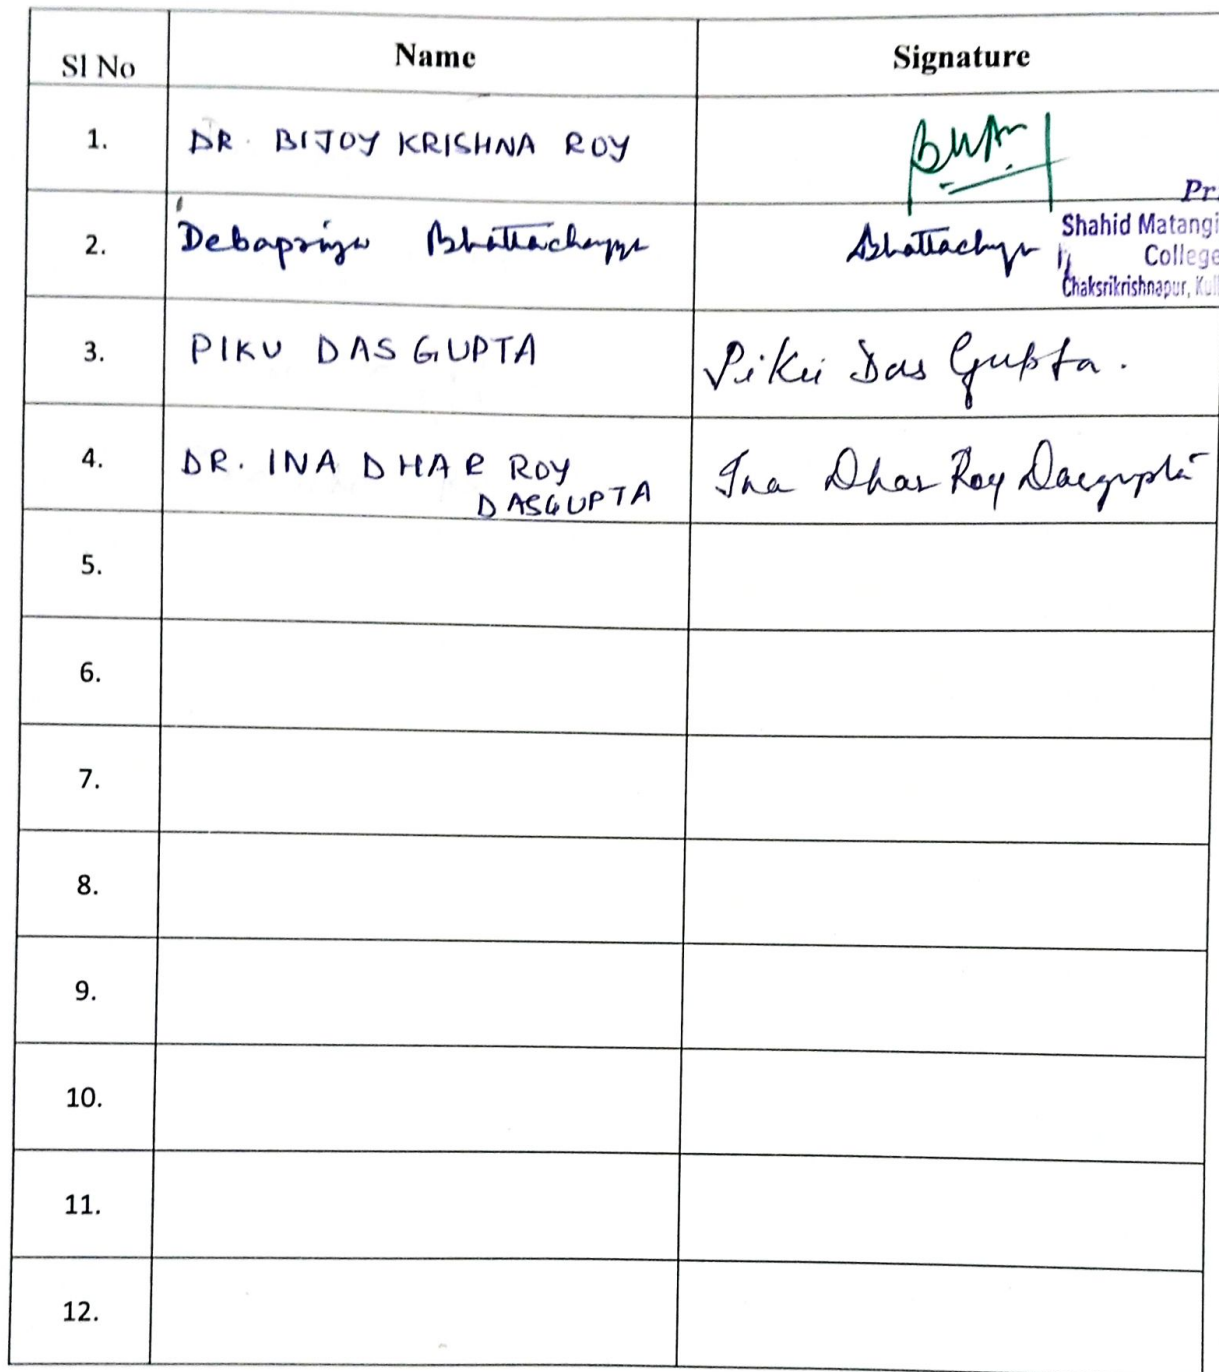 Sl No Name Signature
1. DR. BIJOY KRISHNA ROY
Pr
2. Debapriya Bhattacharyya Bhattacharyya
Shahid Matangi
College
Chaksrikrishnapur, Kul
3. PIKU DAS GUPTA Piku Das Gupta.
4. DR. INA DHAR ROY Ina Dhar Roy Dasgupta
DASGUPTA
5.
6.
7.
8.
9.
10.
11.
12.